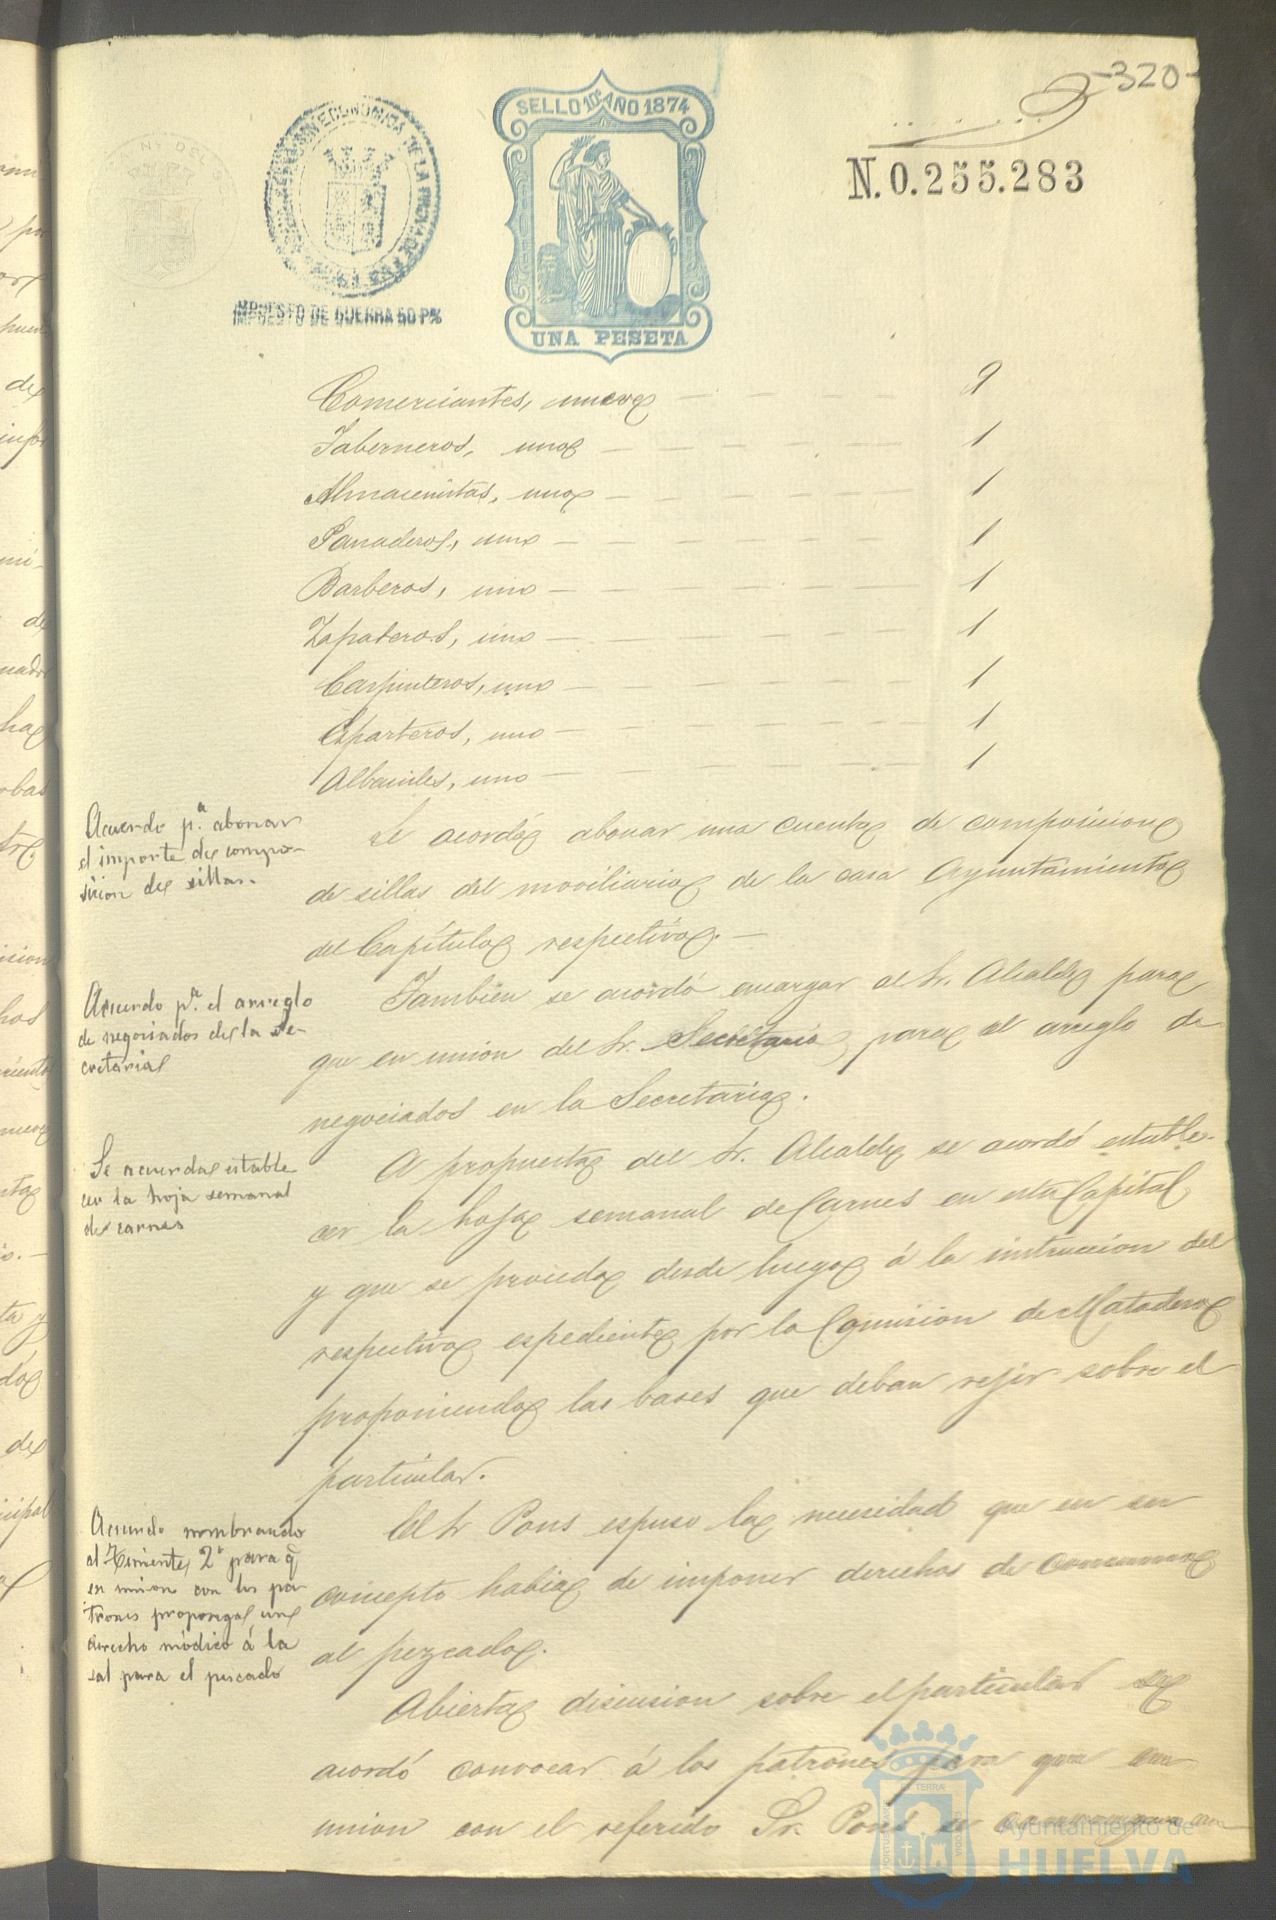 -320-
SELLO 10º AÑO 1874
N. 0.255.283
IMPUESTO DE GUERRA 50 P%
UNA PESETA
Comerciantes, nueve 9
Taberneros, uno 1
Almacenistas, uno 1
Panaderos, uno 1
Barberos, uno 1
Zapateros, uno 1
Carpinteros, uno 1
Esparteros, uno 1
Albañiles, uno 1
Acuerdo p.ª abonar
el importe de compo-
sicion de sillas.
Se acordó abonar una cuenta de composicion
de sillas del moviliario de la casa Ayuntamiento
del Capítulo respectivo.
Acuerdo p.ª el arreglo
de negociados de la Se-
cretaria
Tambien se acordó encargar al Sr. Alcalde para
que en union del Sr. Secretario para el arreglo de
negociados en la Secretaria.
Se acuerda estable
cer la hoja semanal
de carnes
A propuesta del Sr. Alcalde se acordó estable-
cer la hoja semanal de Carnes en esta Capital
y que se proceda desde luego á la instruccion del
respectivo espediente por la Comision de Matadero
proponiendo las bases que deban rejir sobre el
particular.
Acuerdo nombrando
al Teniente 2º para q
en union con los pa-
trones proponga un
derecho módico á la
sal para el pescado
El Sr Pons espuso la necesidad que en su
concepto habia de imponer derechos de consumo
al pezcado.
Abierta discusion sobre el particular se
acordó convocar á los patrones para que en
union con el referido Sr. Pons se
Ayuntamiento de
HUELVA